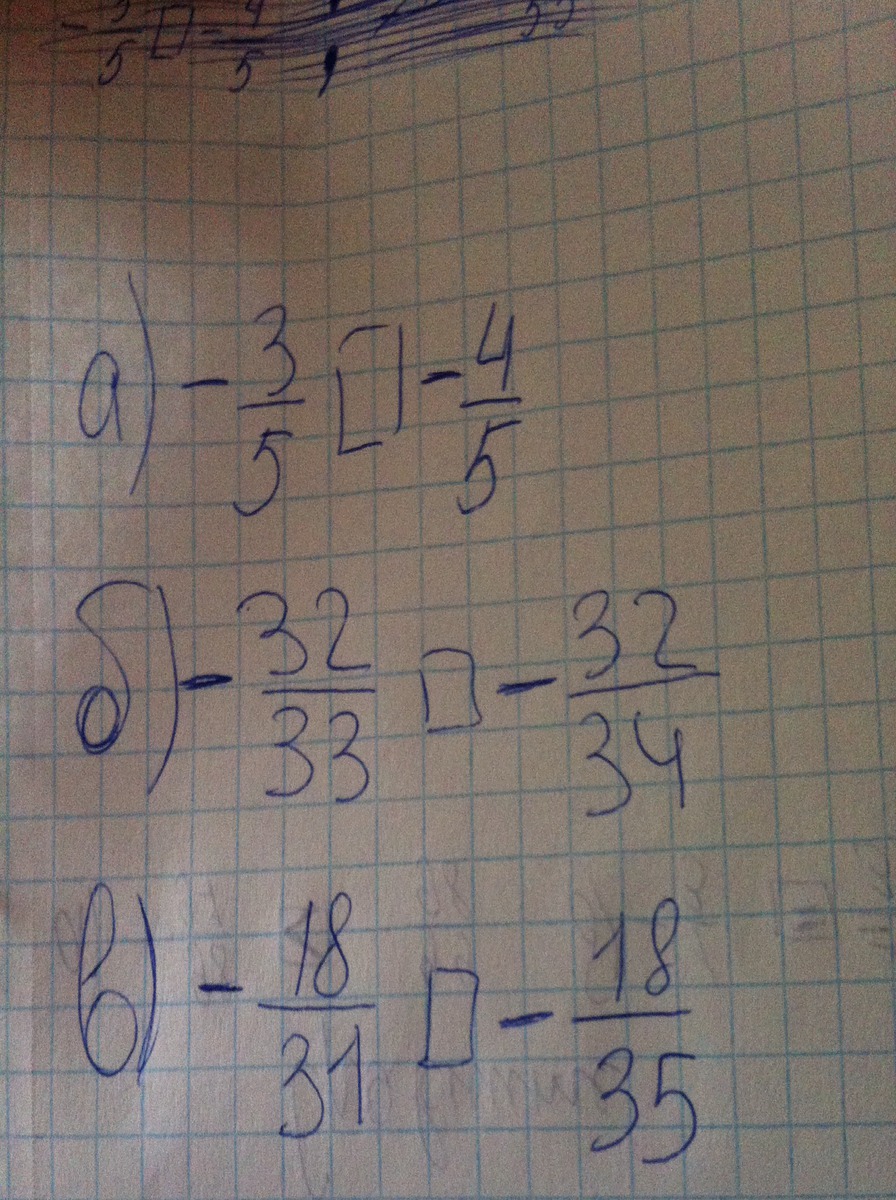 - 3/5 □ - 4/5
а) - 3/5 □ - 4/5
б) - 32/33 □ - 32/34
в) - 18/31 □ - 18/35